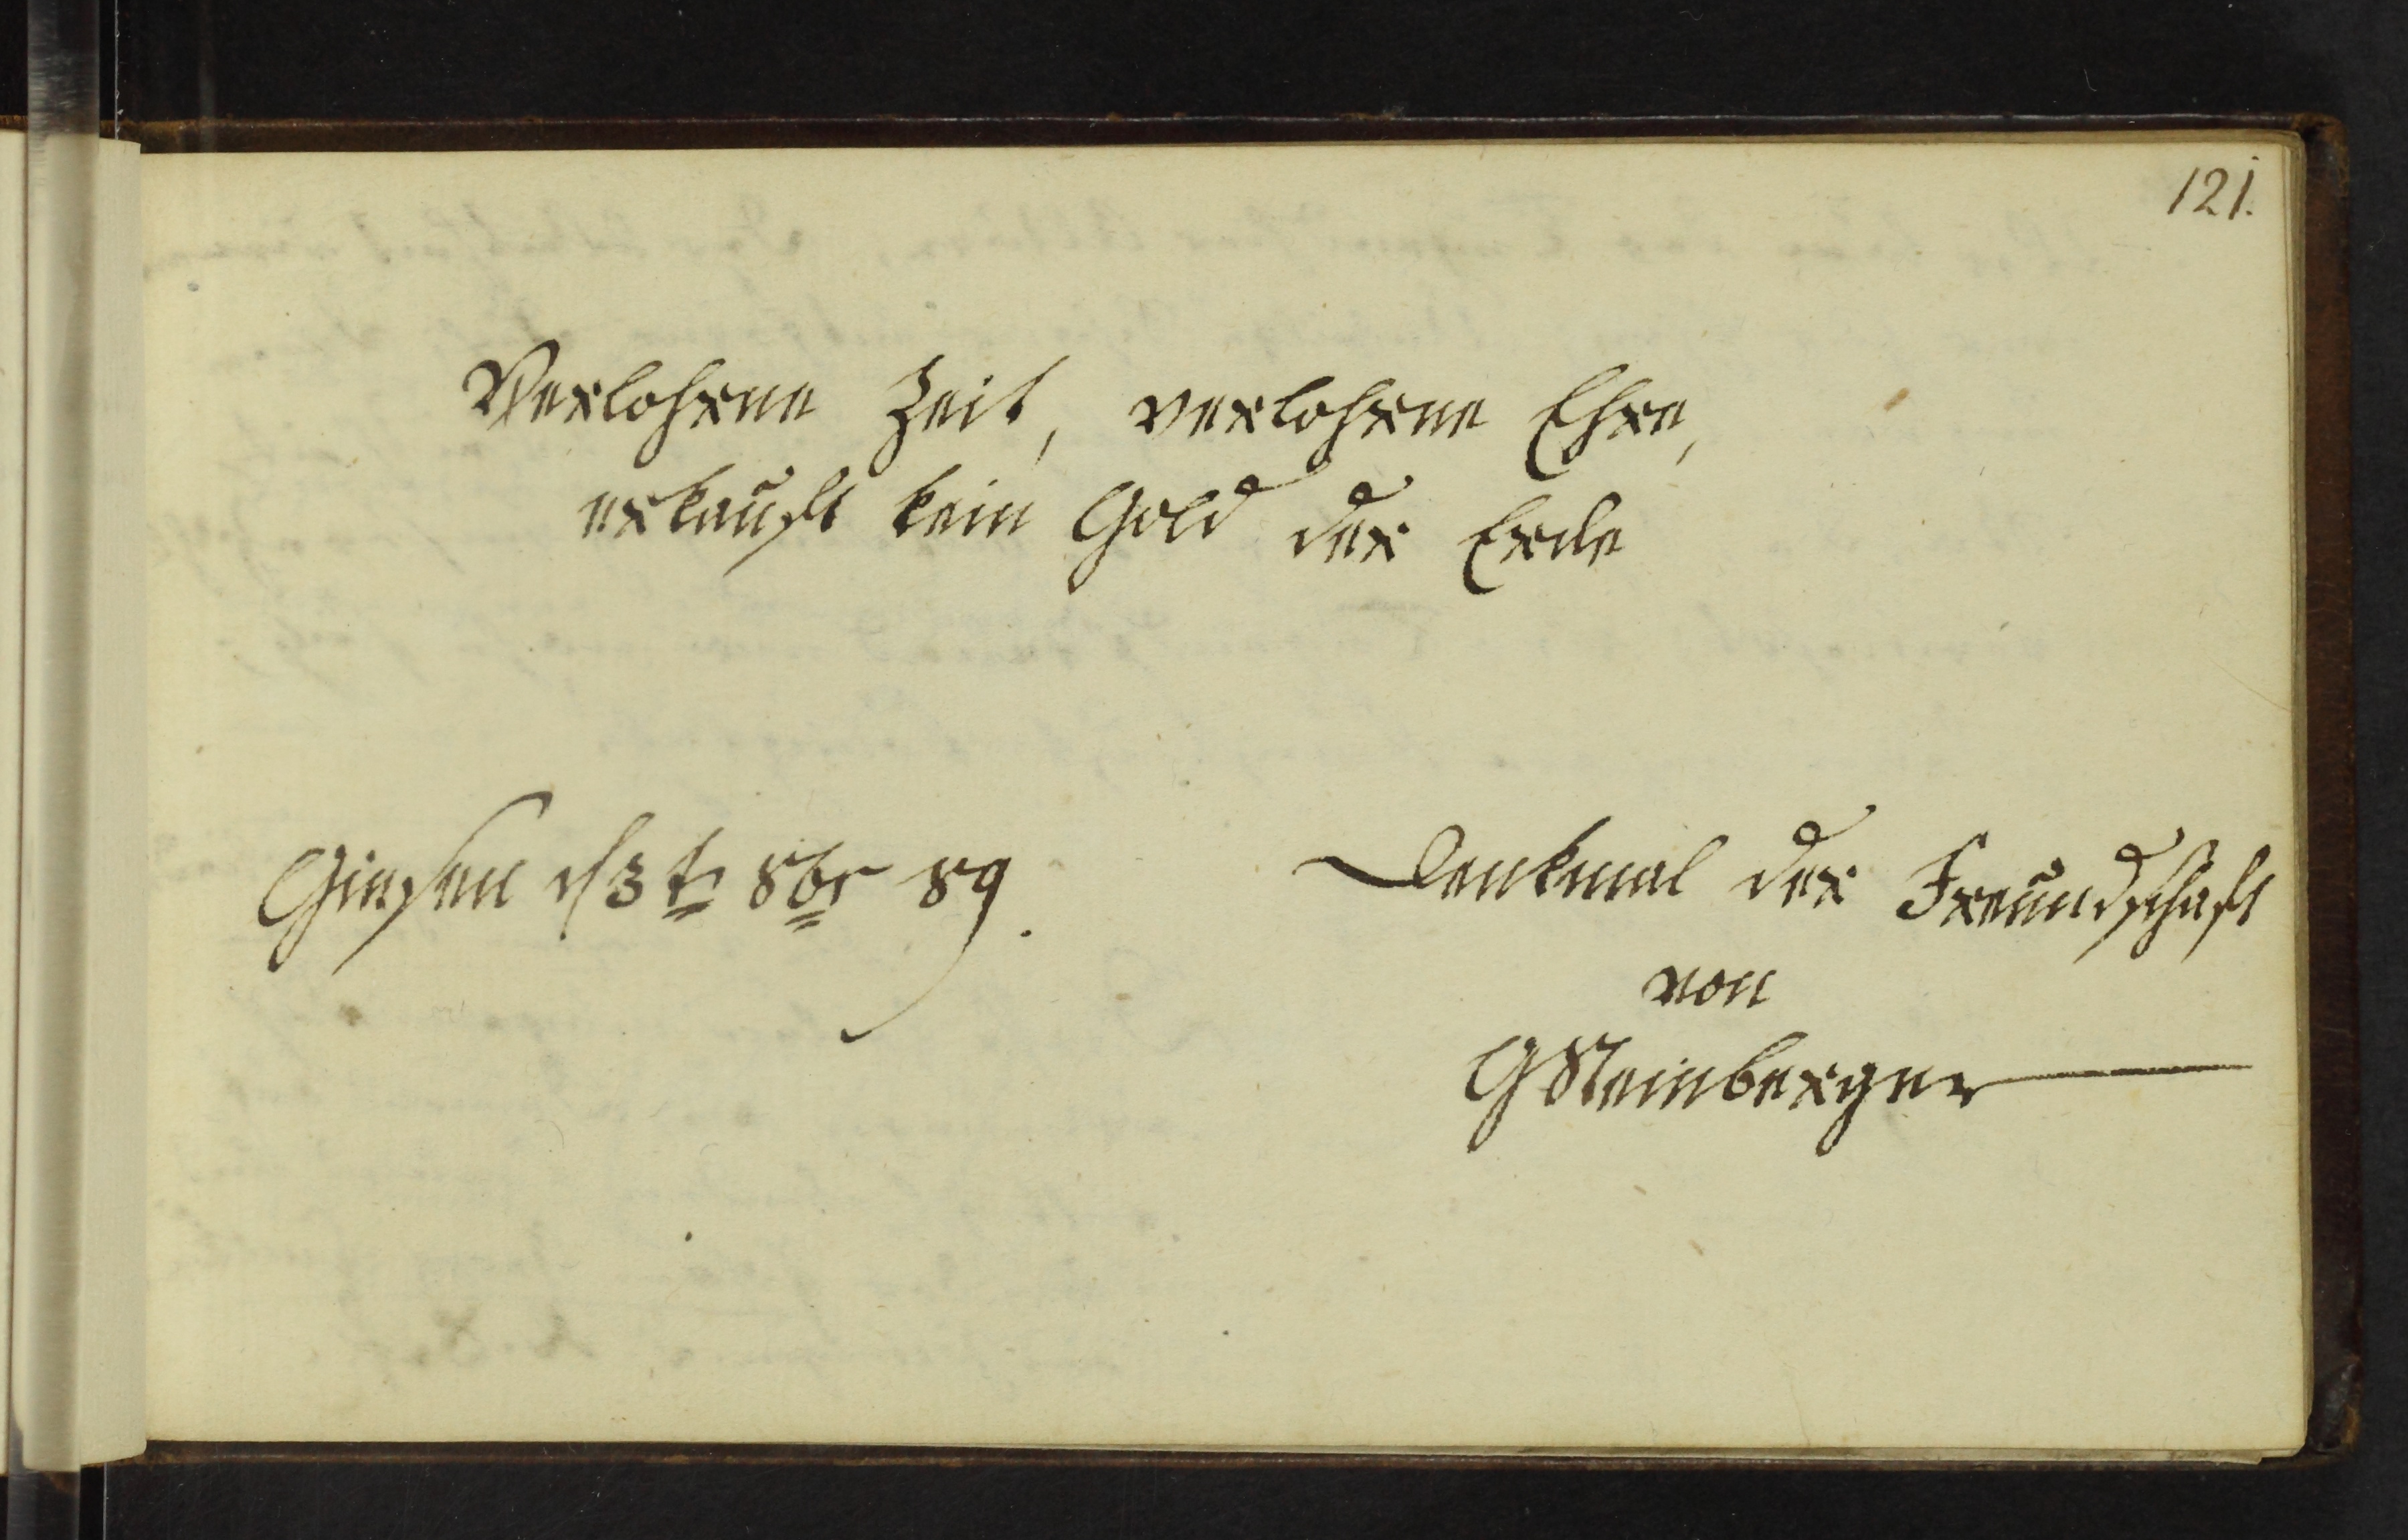 121.
Verlohrne Zeit, verlohrne Ehre,
erkauft kein Gold der Erde
Giesen d 3t 8br 89.
Denkmal der Freundschaft
von
GSteinberger